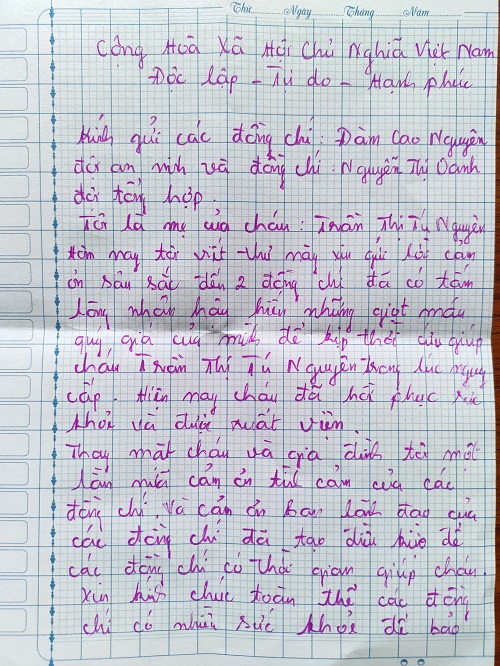 Thứ Ngày Tháng Năm
Cộng Hoà Xã Hội Chủ Nghĩa Việt Nam
Độc lập - Tự do - Hạnh phúc
Kính gửi các đồng chí: Đàm Cao Nguyên
đội an ninh và đồng chí: Nguyễn Thị Oanh
đội tổng hợp.
Tôi là mẹ của cháu: Trần Thị Tú Nguyên
Hôm nay tôi viết thư này xin gửi lời cảm
ơn sâu sắc đến 2 đồng chí đã có tấm
lòng nhân hậu hiến những giọt máu
quý giá của mình để kịp thời cứu giúp
cháu Trần Thị Tú Nguyên trong lúc nguy
cấp. Hiện nay cháu đã hồi phục sức
khoẻ và được xuất viện.
Thay mặt cháu và gia đình tôi một
lần nữa cảm ơn tình cảm của các
đồng chí và cảm ơn ban lãnh đạo của
các đồng chí đã tạo điều kiện để
các đồng chí có thời gian giúp cháu.
Xin kính chúc toàn thể các đồng
chí có nhiều sức khoẻ để bảo